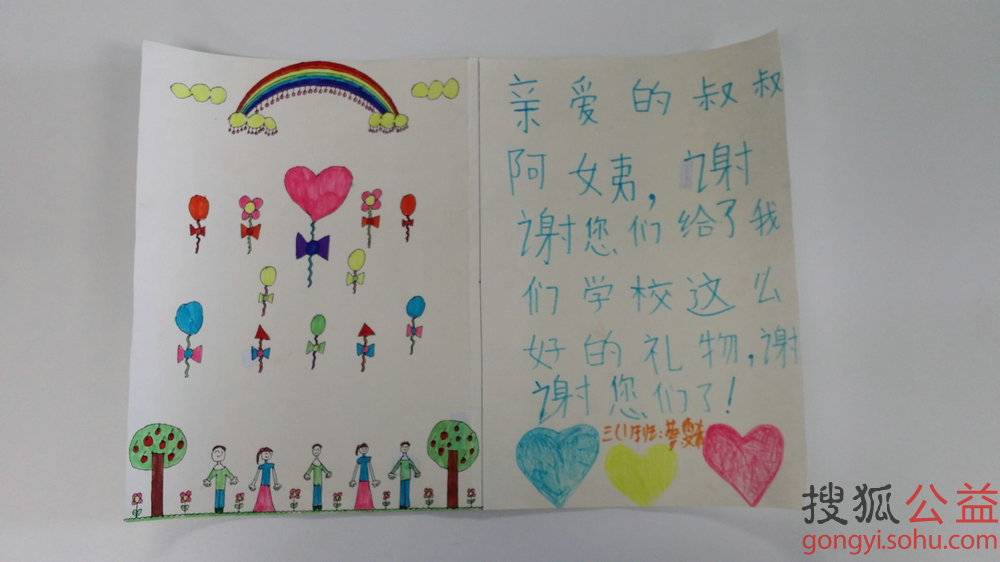 亲爱的叔叔
阿姨,谢
谢您们给了我
们学校这么
好的礼物,谢
谢您们了!
三(1)班:
搜狐公益
gongyi.sohu.com